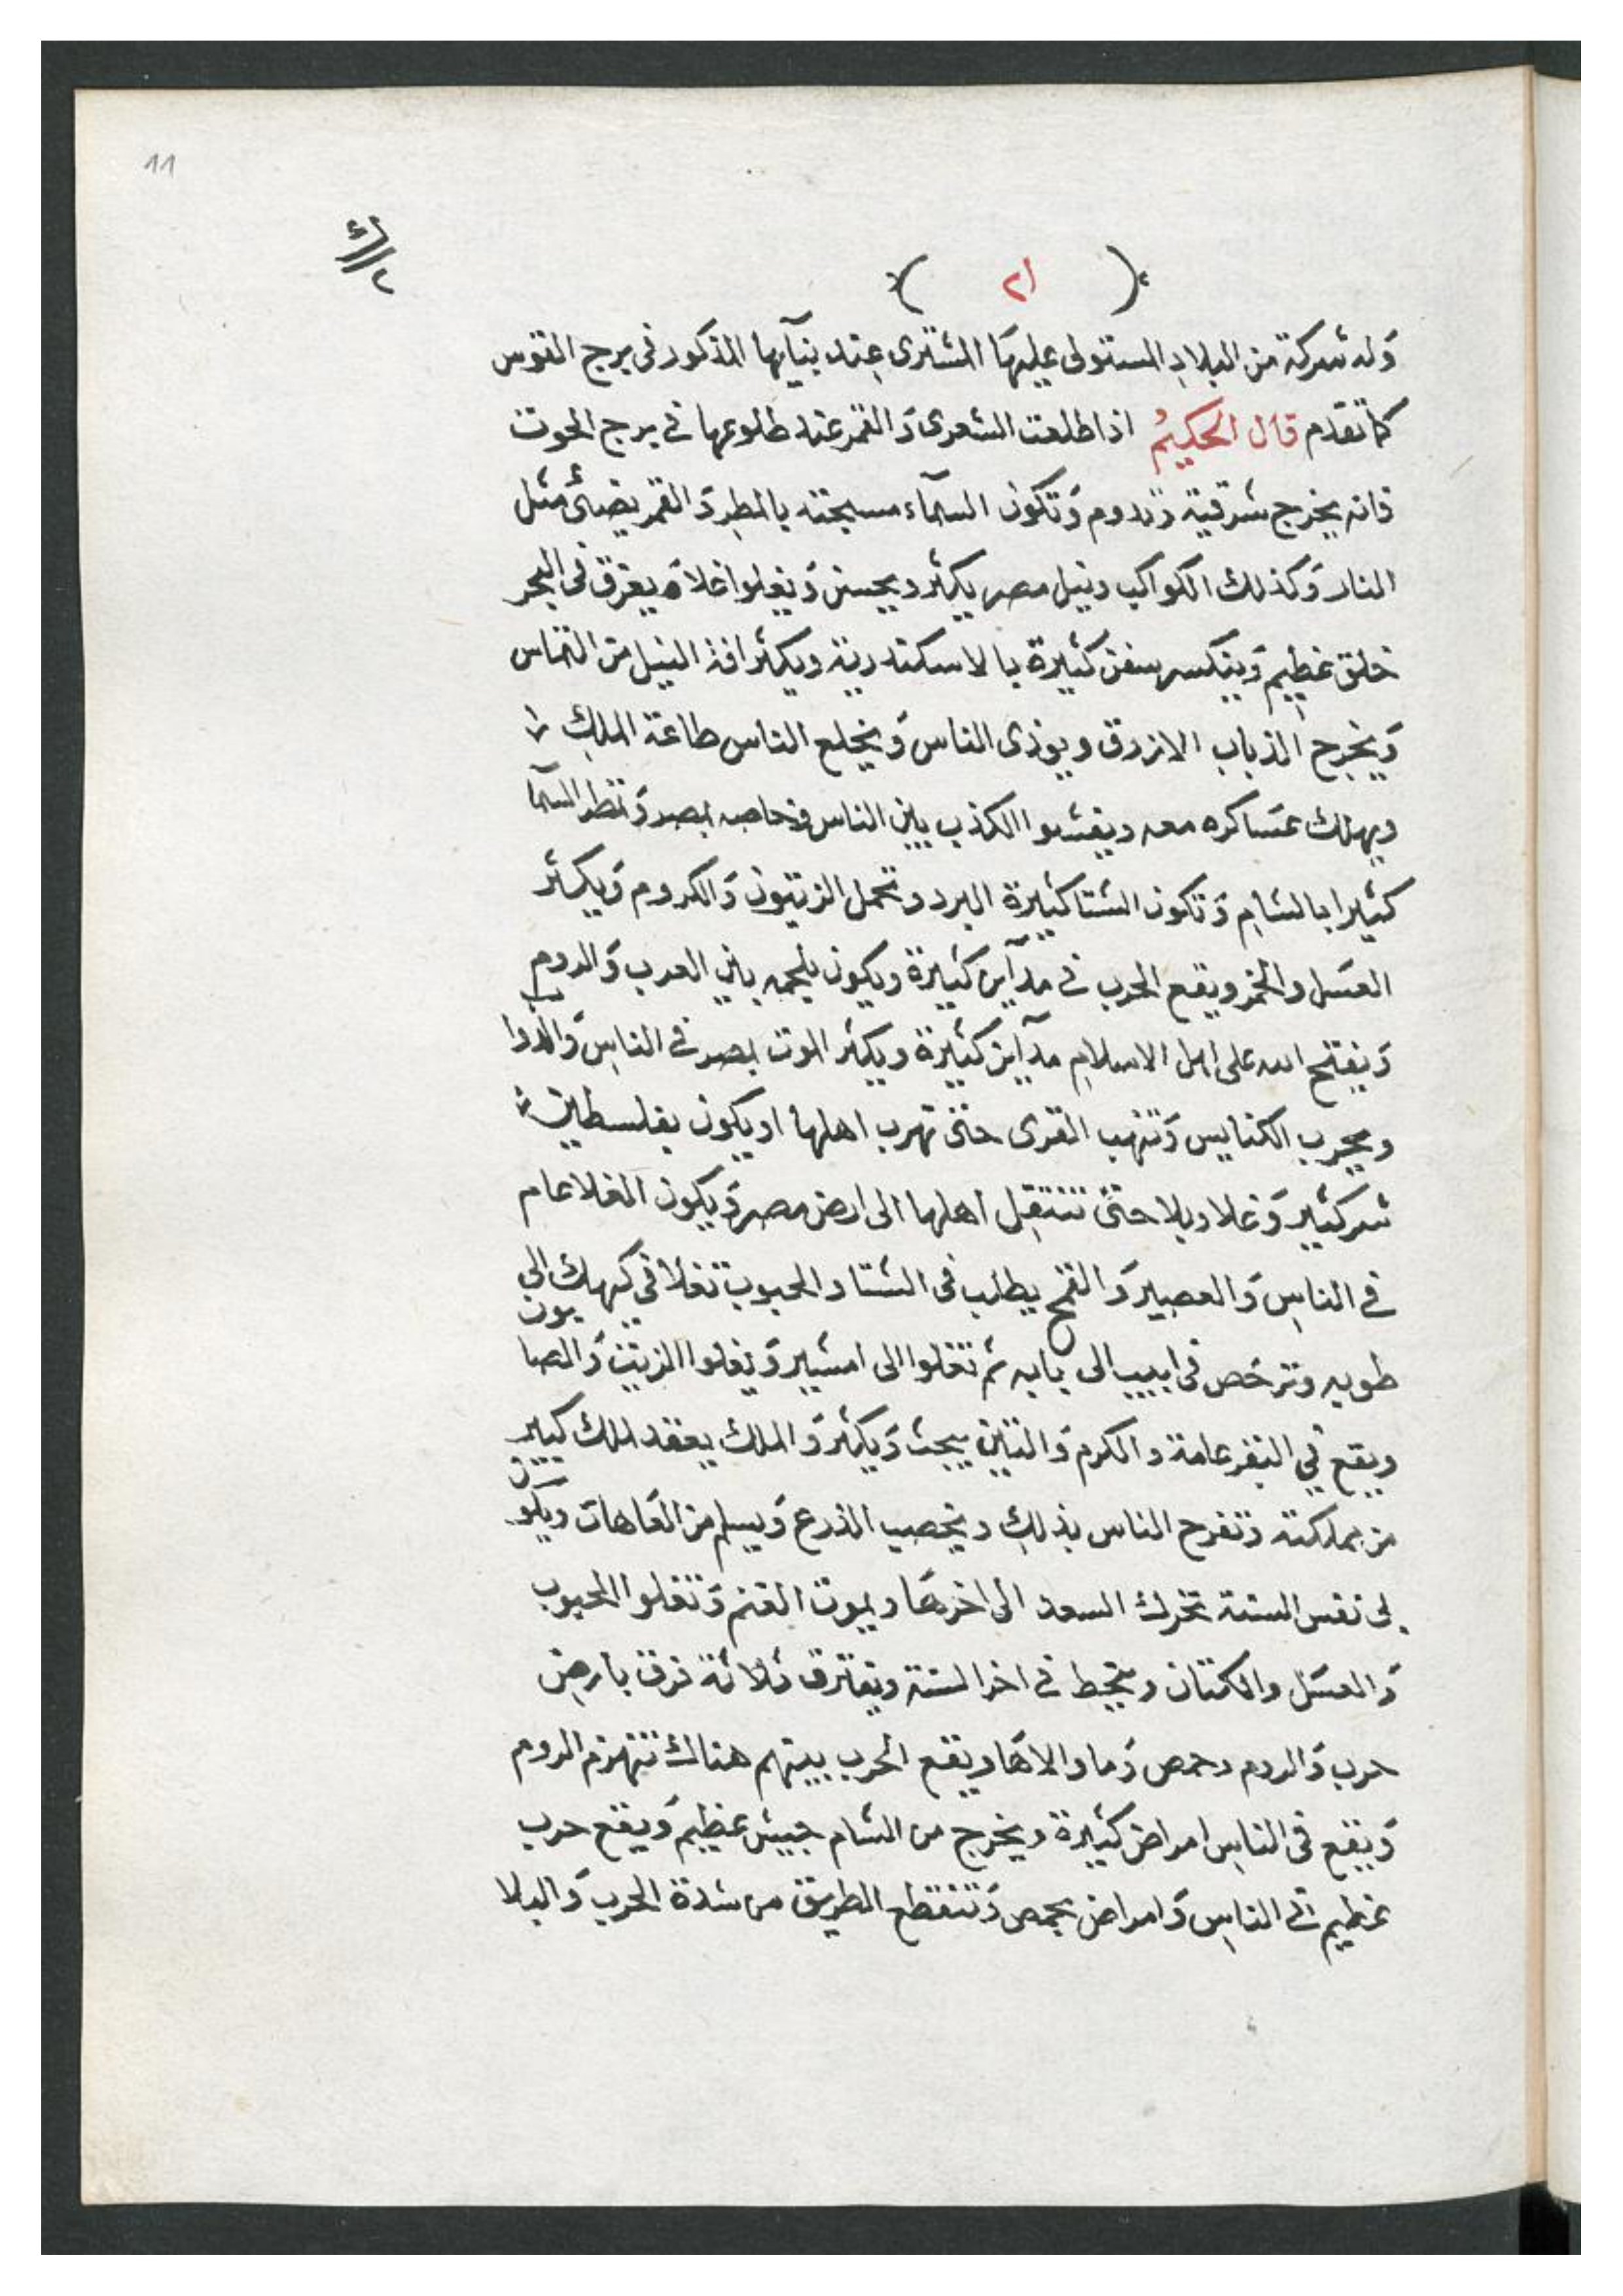 11
( ٢١ )
وله شركة من البلاد المستولى عليها المشترى عند بنيآيها المذكور فى برج القوس
كما تقدم قال الحكيم اذا طلعت الشعرى والقمر عند طلوعها فى برج الحوت
فانه يخرج شرقية وتدوم وتكون السمآء مسيجنه بالمطر والقمر يضئ مثل
النار وكذلك الكواكب ونيل مصر يكثر ويحسن ويغلوا غلاه يغرق فى البحر
خلق عظيم وينكسر سفن كثيرة بالاسكندرية ويكثر افة النيل من التماس
ويخرج الذباب الازرق ويوذى الناس ويخلع الناس طاعة الملك
ويهلك عساكره معه ويفشوا الكذب بين الناس وخاصه بمصر وتمطر السمآ
كثيرا بالشام وتكون الشتا كثيرة البرد وتحمل الزيتون والكروم ويكثر
العسل والخمر ويقع الحرب فى مدآين كثيرة ويكون ملحمه بين العرب والروم
ويفتح الله على اهل الاسلام مدآين كثيرة ويكثر الموت بمصر فى الناس والدواب
ويخرب الكنايس وتنهب القرى حتى تهرب اهلها او يكون بفلسطين
شر كثير وغلا وبلا حتى تنتقل اهلها الى ارض مصر ويكون الغلا عام
فى الناس والعصير والقمح يطلب فى الشتا والحبوب تغلا فى كيهك الى
طوبه وترخص فى ابيب الى بابه ثم تغلوا الى امشير ويغلوا الزيت والصابون
ويقع فى البقر عامة والكرم والتين يبحث ويكثر والملك يعقد لملك كبير
من مملكته وتفرح الناس بذلك ويخصب الزرع ويسلم من العاهات ويكون
لى نفس السنة تحرك السعد الى اخرها ويموت الغنم وتغلوا الحبوب
والعسل والكتان وينحط فى اخر السنة ويفترق ثلاثة فرق بارض
حرب والروم وحمص وما والاها ويقع الحرب بينهم هناك تنهزم الروم
ويقع فى الناس امراض كثيرة ويخرج من الشام جيش عظيم ويقع حرب
عظيم فى الناس وامراض بحمص وتنقطع الطريق من شدة الحرب والبلا